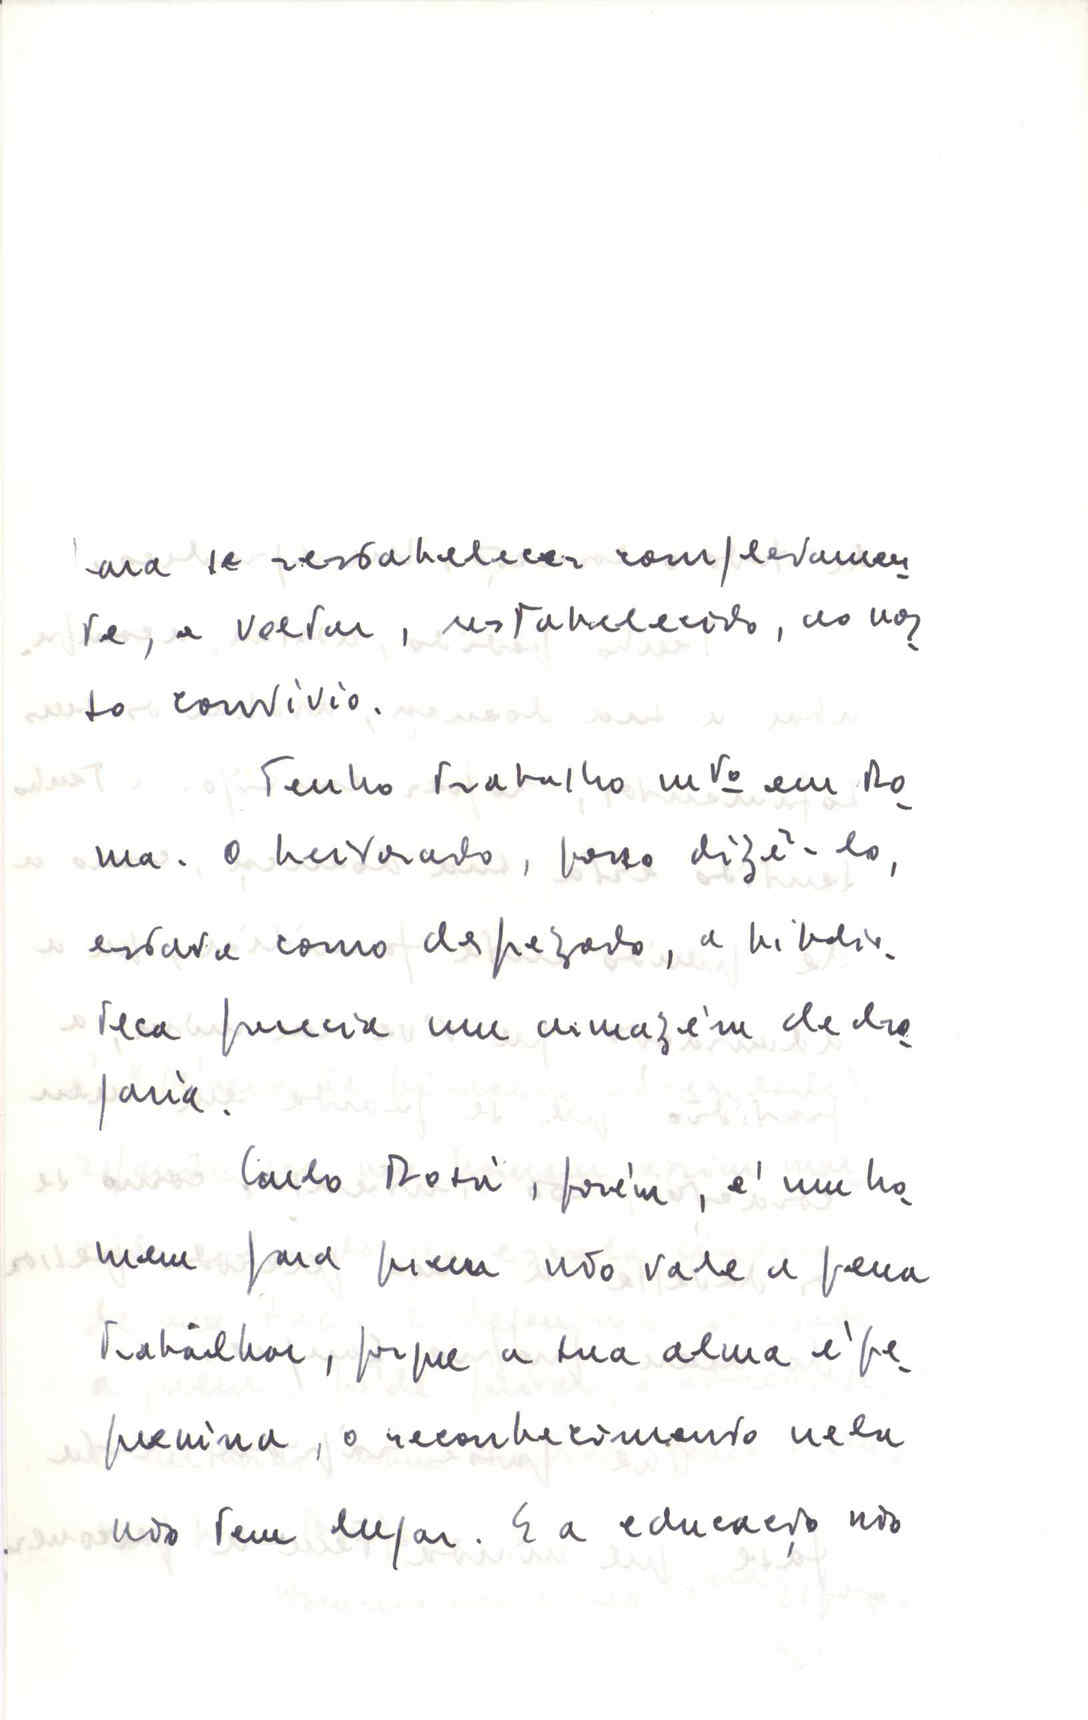 para se restabelecer completamen-
te, e voltar, restabelecido, ao nos-
so convívio.
Tenho trabalho mto em Ro-
ma. O leitorado, posso dizê-lo,
estava como desprezado, a biblio-
teca parecia um armazém de dro-
garia.
Carlo Rossi, porém, é um ho-
mem para quem não vale a pena
trabalhar, porque a sua alma é pe-
quenina, o reconhecimento nela
não tem lugar. E a educação não